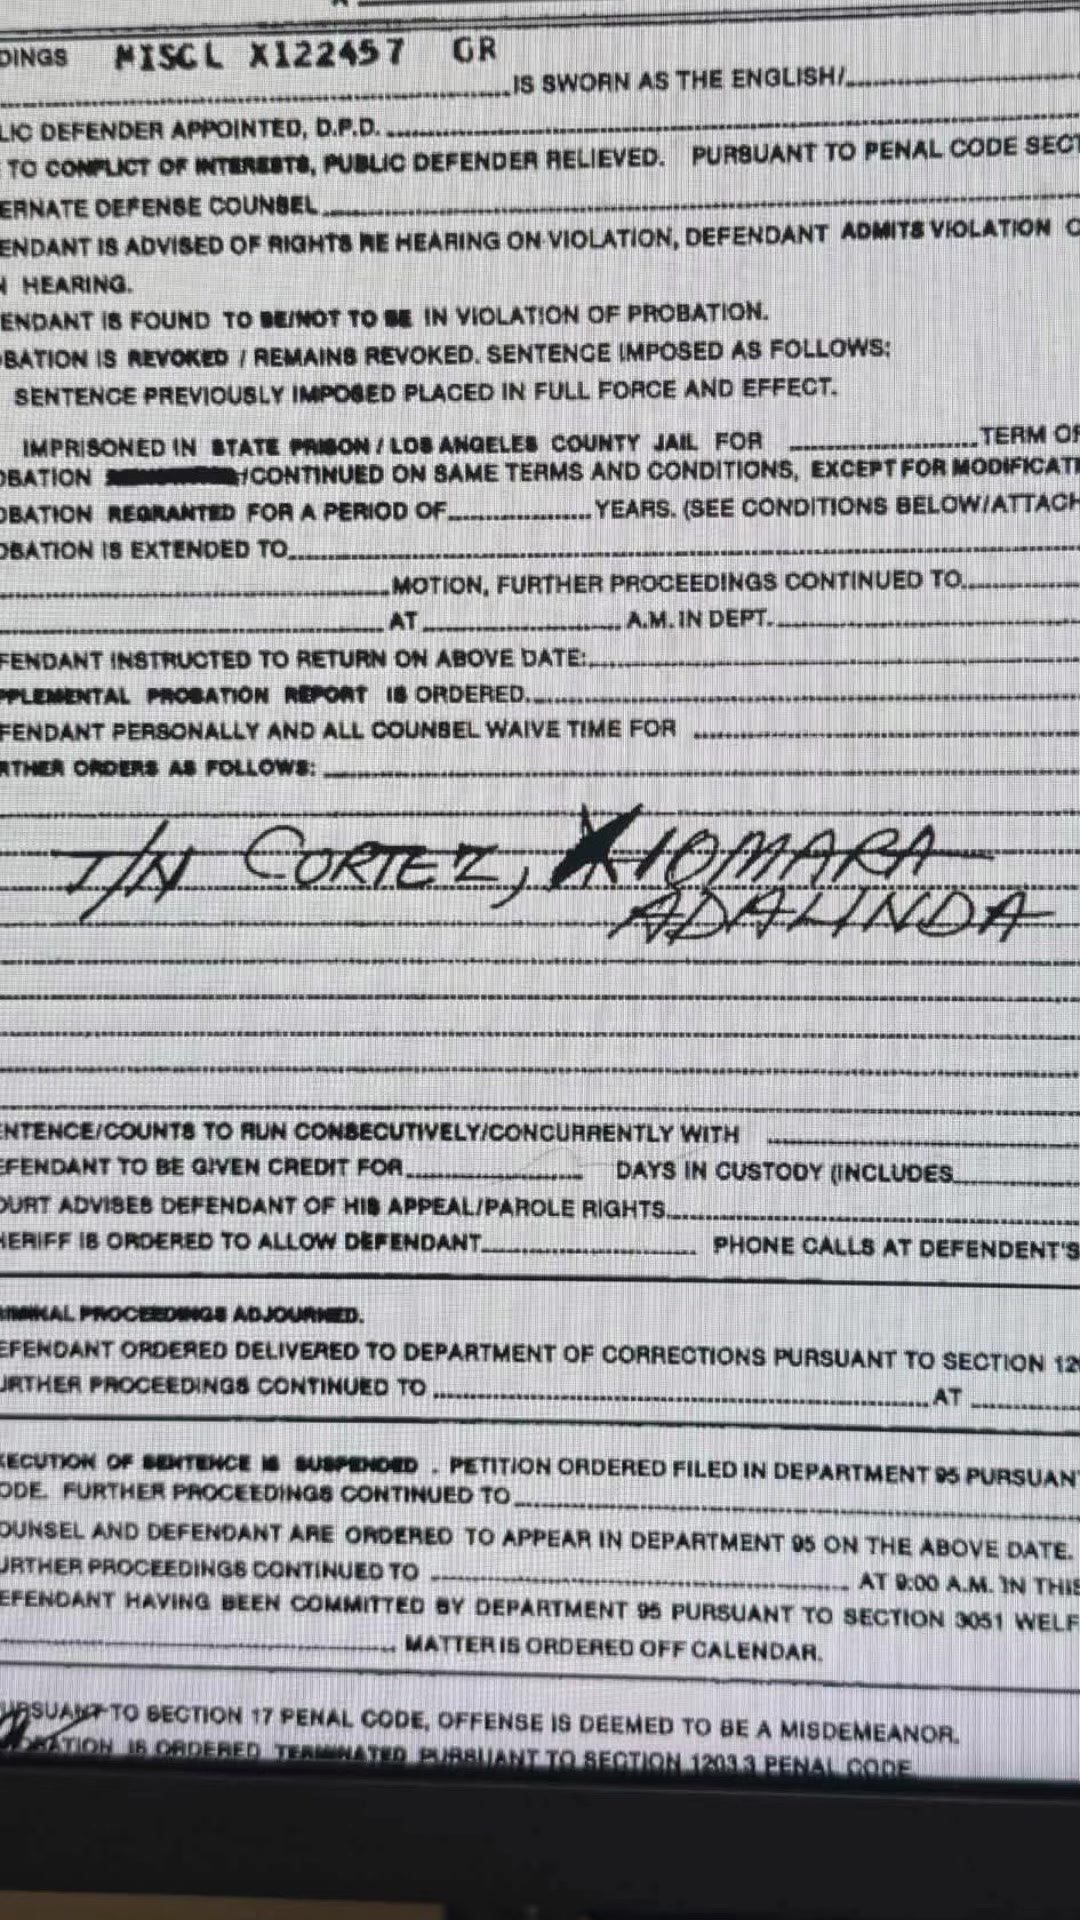 DINGS MISCL X122457 GR
IS SWORN AS THE ENGLISH/
LIC DEFENDER APPOINTED, D.P.D.
TO CONFLICT OF INTERESTS, PUBLIC DEFENDER RELIEVED. PURSUANT TO PENAL CODE SECT
ERNATE DEFENSE COUNSEL
ENDANT IS ADVISED OF RIGHTS RE HEARING ON VIOLATION, DEFENDANT ADMITS VIOLATION O
N HEARING.
ENDANT IS FOUND TO BE/NOT TO BE IN VIOLATION OF PROBATION.
OBATION IS REVOKED / REMAINS REVOKED. SENTENCE IMPOSED AS FOLLOWS:
SENTENCE PREVIOUSLY IMPOSED PLACED IN FULL FORCE AND EFFECT.
IMPRISONED IN STATE PRISON / LOS ANGELES COUNTY JAIL FOR TERM OF
OBATION /CONTINUED ON SAME TERMS AND CONDITIONS, EXCEPT FOR MODIFICATI
OBATION REGRANTED FOR A PERIOD OF YEARS. (SEE CONDITIONS BELOW/ATTACH
OBATION IS EXTENDED TO
MOTION, FURTHER PROCEEDINGS CONTINUED TO
AT A.M. IN DEPT.
FENDANT INSTRUCTED TO RETURN ON ABOVE DATE:
PPLEMENTAL PROBATION REPORT IS ORDERED.
FENDANT PERSONALLY AND ALL COUNSEL WAIVE TIME FOR
RTHER ORDERS AS FOLLOWS:
T/N CORTEZ, XIOMARA
ADALINDA
ENTENCE/COUNTS TO RUN CONSECUTIVELY/CONCURRENTLY WITH
EFENDANT TO BE GIVEN CREDIT FOR DAYS IN CUSTODY (INCLUDES
OURT ADVISES DEFENDANT OF HIS APPEAL/PAROLE RIGHTS
HERIFF IS ORDERED TO ALLOW DEFENDANT PHONE CALLS AT DEFENDENT'S
IMINAL PROCEEDINGS ADJOURNED.
EFENDANT ORDERED DELIVERED TO DEPARTMENT OF CORRECTIONS PURSUANT TO SECTION 120
URTHER PROCEEDINGS CONTINUED TO AT
XECUTION OF SENTENCE IS SUSPENDED . PETITION ORDERED FILED IN DEPARTMENT 95 PURSUANT
ODE. FURTHER PROCEEDINGS CONTINUED TO
OUNSEL AND DEFENDANT ARE ORDERED TO APPEAR IN DEPARTMENT 95 ON THE ABOVE DATE.
URTHER PROCEEDINGS CONTINUED TO AT 9:00 A.M. IN THIS
EFENDANT HAVING BEEN COMMITTED BY DEPARTMENT 95 PURSUANT TO SECTION 3051 WELF
MATTER IS ORDERED OFF CALENDAR.
URSUANT TO SECTION 17 PENAL CODE, OFFENSE IS DEEMED TO BE A MISDEMEANOR.
OBATION IS ORDERED TERMINATED PURSUANT TO SECTION 1203.3 PENAL CODE